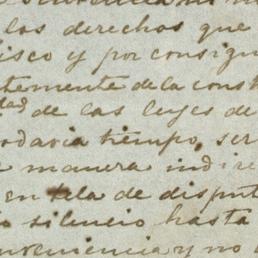 los derechos que
isco y por consigu
temente de la const
dad de las leyes de
odavia tiempo, ser
manera indire
en tela de disput
silencio hasta
nveniencia y no